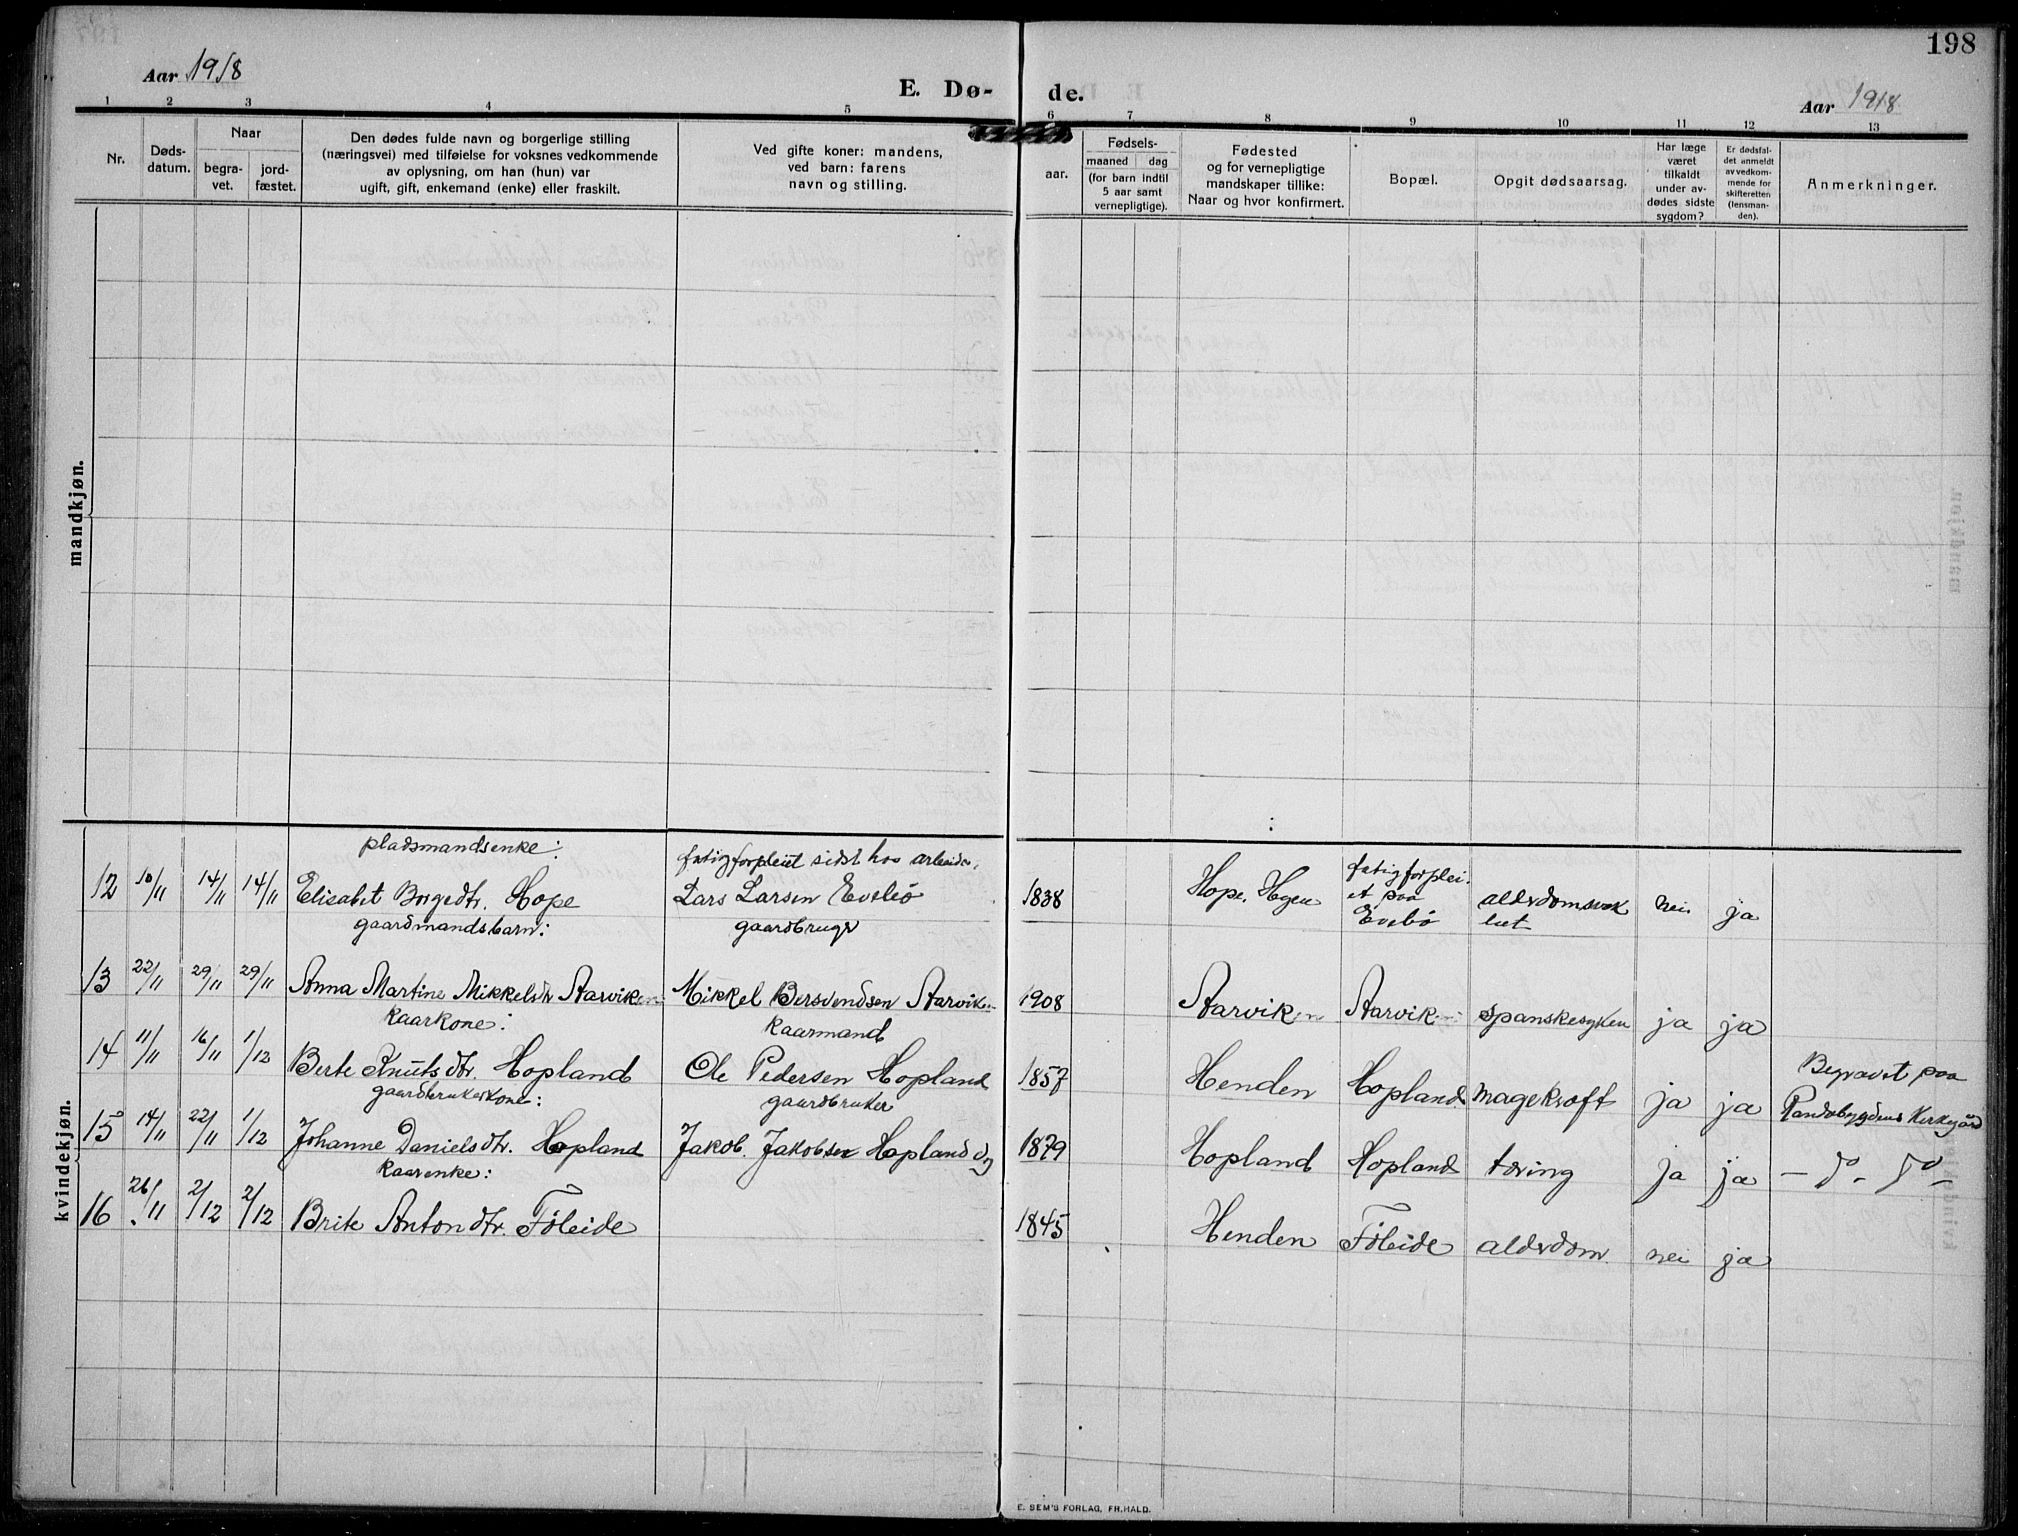 198
Aar 1918
E. Dø-
de.
Aar 1918
1 2 3 4 5 6 7 8 9 10 11 12 13
Nr.
Døds-
datum.
Naar
begra-
vet.
jord-
fæstet.
Den dødes fulde navn og borgerlige stilling
(næringsvei) med tilføielse for voksnes vedkommende
av oplysning, om han (hun) var
ugift, gift, enkemand (enke) eller fraskilt.
Ved gifte koner: mandens,
ved barn: farens
navn og stilling.
aar.
Fødsels-
maaned dag
(for barn indtil
5 aar samt
vernepligtige).
Fødested
og for vernepligtige
mandskaper tillike:
Naar og hvor konfirmert.
Bopæl.
Opgit dødsaarsag.
Har læge
været
tilkaldt
under av-
dødes sidste
sygdom?
Er dødsfal-
det anmeldt
av vedkom-
mende for
skifteretten
(lensman-
den).
Anmerkninger.
mandkjøn.
kvindekjøn.
pladsmandsenke: fatigforpleiet sidst hos arbeider, fatigforplei.
12 10/11 14/11 14/11 Elisabet Borgedtr. Hope Lars Larsen Evebø 1838 Hope, Hyen et paa Evebø alderdomsvak nei ja
gaardmandsbarn: gaardbruger
13 22/11 29/11 29/11 Anna Martine Mikkelsdtr Aarviken Mikkel Bersvendsen Aarvik 1908 Aarviken Aarvik spanskesyken ja ja
kaarkone: kaarmand
14 11/11 16/11 1/12 Berte Knutsdtr. Hopland Ole Pedersen Hopland 1857 Henden Hopland magekræft ja ja Begravet paa
gaardbrukerkone: gaardbruker kirkegård
15 14/11 22/11 1/12 Johanne Danielsdtr. Hopland Jakob Jakobsen Hopland 1879 Hopland Hopland tæring ja ja
kaarenke:
16 26/11 2/12 2/12 Brite Antondtr. Föleide 1845 Henden Föleide alderdom nei ja
E. SEM'S FORLAG, FR.HALD.